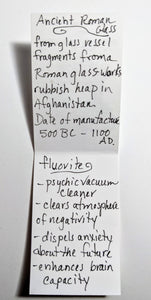 Ancient Roman
Glass
from glass vessel
fragments from a
Roman glass-works
rubbish heap in
Afghanistan.
Date of manufacture
500 BC - 1100
A.D.
fluorite
- psychic vacuum
cleaner
- clears atmosphere
of negativity
- dispels anxiety
about the future
- enhances brain
capacity